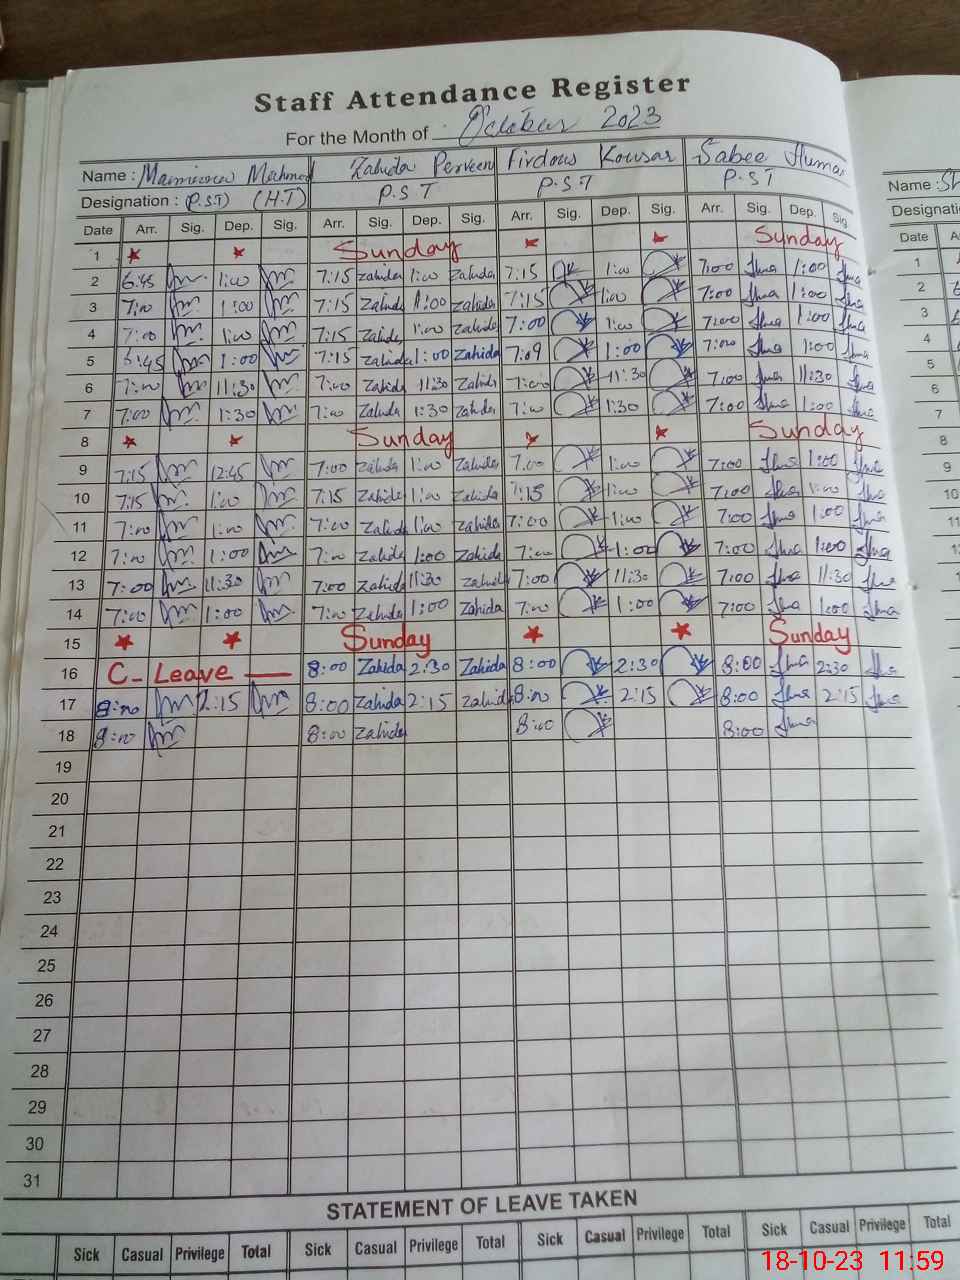 Staff Attendance Register
For the Month of October 2023
Name : Mehmood Zahida Perveen Firdous Kousar Sabee Huma Name :
Designation : (P.S.T) (H.T) P.S.T P.S.T P.S.T
Date Arr. Sig. Dep. Sig. Arr. Sig. Dep. Sig. Arr. Sig. Dep. Sig. Arr. Sig. Dep. Sig. Date
1 Sunday Sunday 1
2 6:45 1:00 7:15 Zahida 1:00 Zahida 7:15 1:00 7:00 1:00 2
3 7:00 1:00 7:15 Zahida 1:00 Zahida 7:15 1:00 7:00 1:00 3
4 7:00 1:00 7:15 Zahida 1:00 Zahida 7:00 1:00 7:00 1:00 4
5 6:45 1:00 7:15 Zahida 1:00 Zahida 7:09 1:00 7:00 1:00 5
6 7:00 11:30 7:00 Zahida 11:30 Zahida 7:00 11:30 7:00 11:30 6
7 7:00 1:30 7:00 Zahida 1:30 Zahida 7:00 1:30 7:00 1:00 7
8 Sunday Sunday 8
9 7:15 12:45 7:00 Zahida 1:00 Zahida 7:00 1:00 7:00 1:00 9
10 7:15 1:00 7:15 Zahida 1:00 Zahida 7:15 1:00 7:00 1:00 10
11 7:00 1:00 7:00 Zahida 1:00 Zahida 7:00 1:00 7:00 1:00 11
12 7:00 1:00 7:00 Zahida 1:00 Zahida 7:00 1:00 7:00 1:00
13 7:00 11:30 7:00 Zahida 11:30 Zahida 7:00 11:30 7:00 11:30 13
14 7:00 1:00 7:00 Zahida 1:00 Zahida 7:00 1:00 7:00 1:00 14
15 Sunday Sunday 15
16 C- Leave 8:00 Zahida 2:30 Zahida 8:00 2:30 8:00 2:30 16
17 8:00 2:15 8:00 Zahida 2:15 Zahida 8:00 2:15 8:00 2:15 17
18 8:00 8:00 Zahida 8:00 8:00 18
19
20
21
22
23
24
25
26
27
28
29
30
31
STATEMENT OF LEAVE TAKEN
Sick Casual Privilege Total Sick Casual Privilege Total Sick Casual Privilege Total Sick Casual Privilege Total
18-10-23 11:59